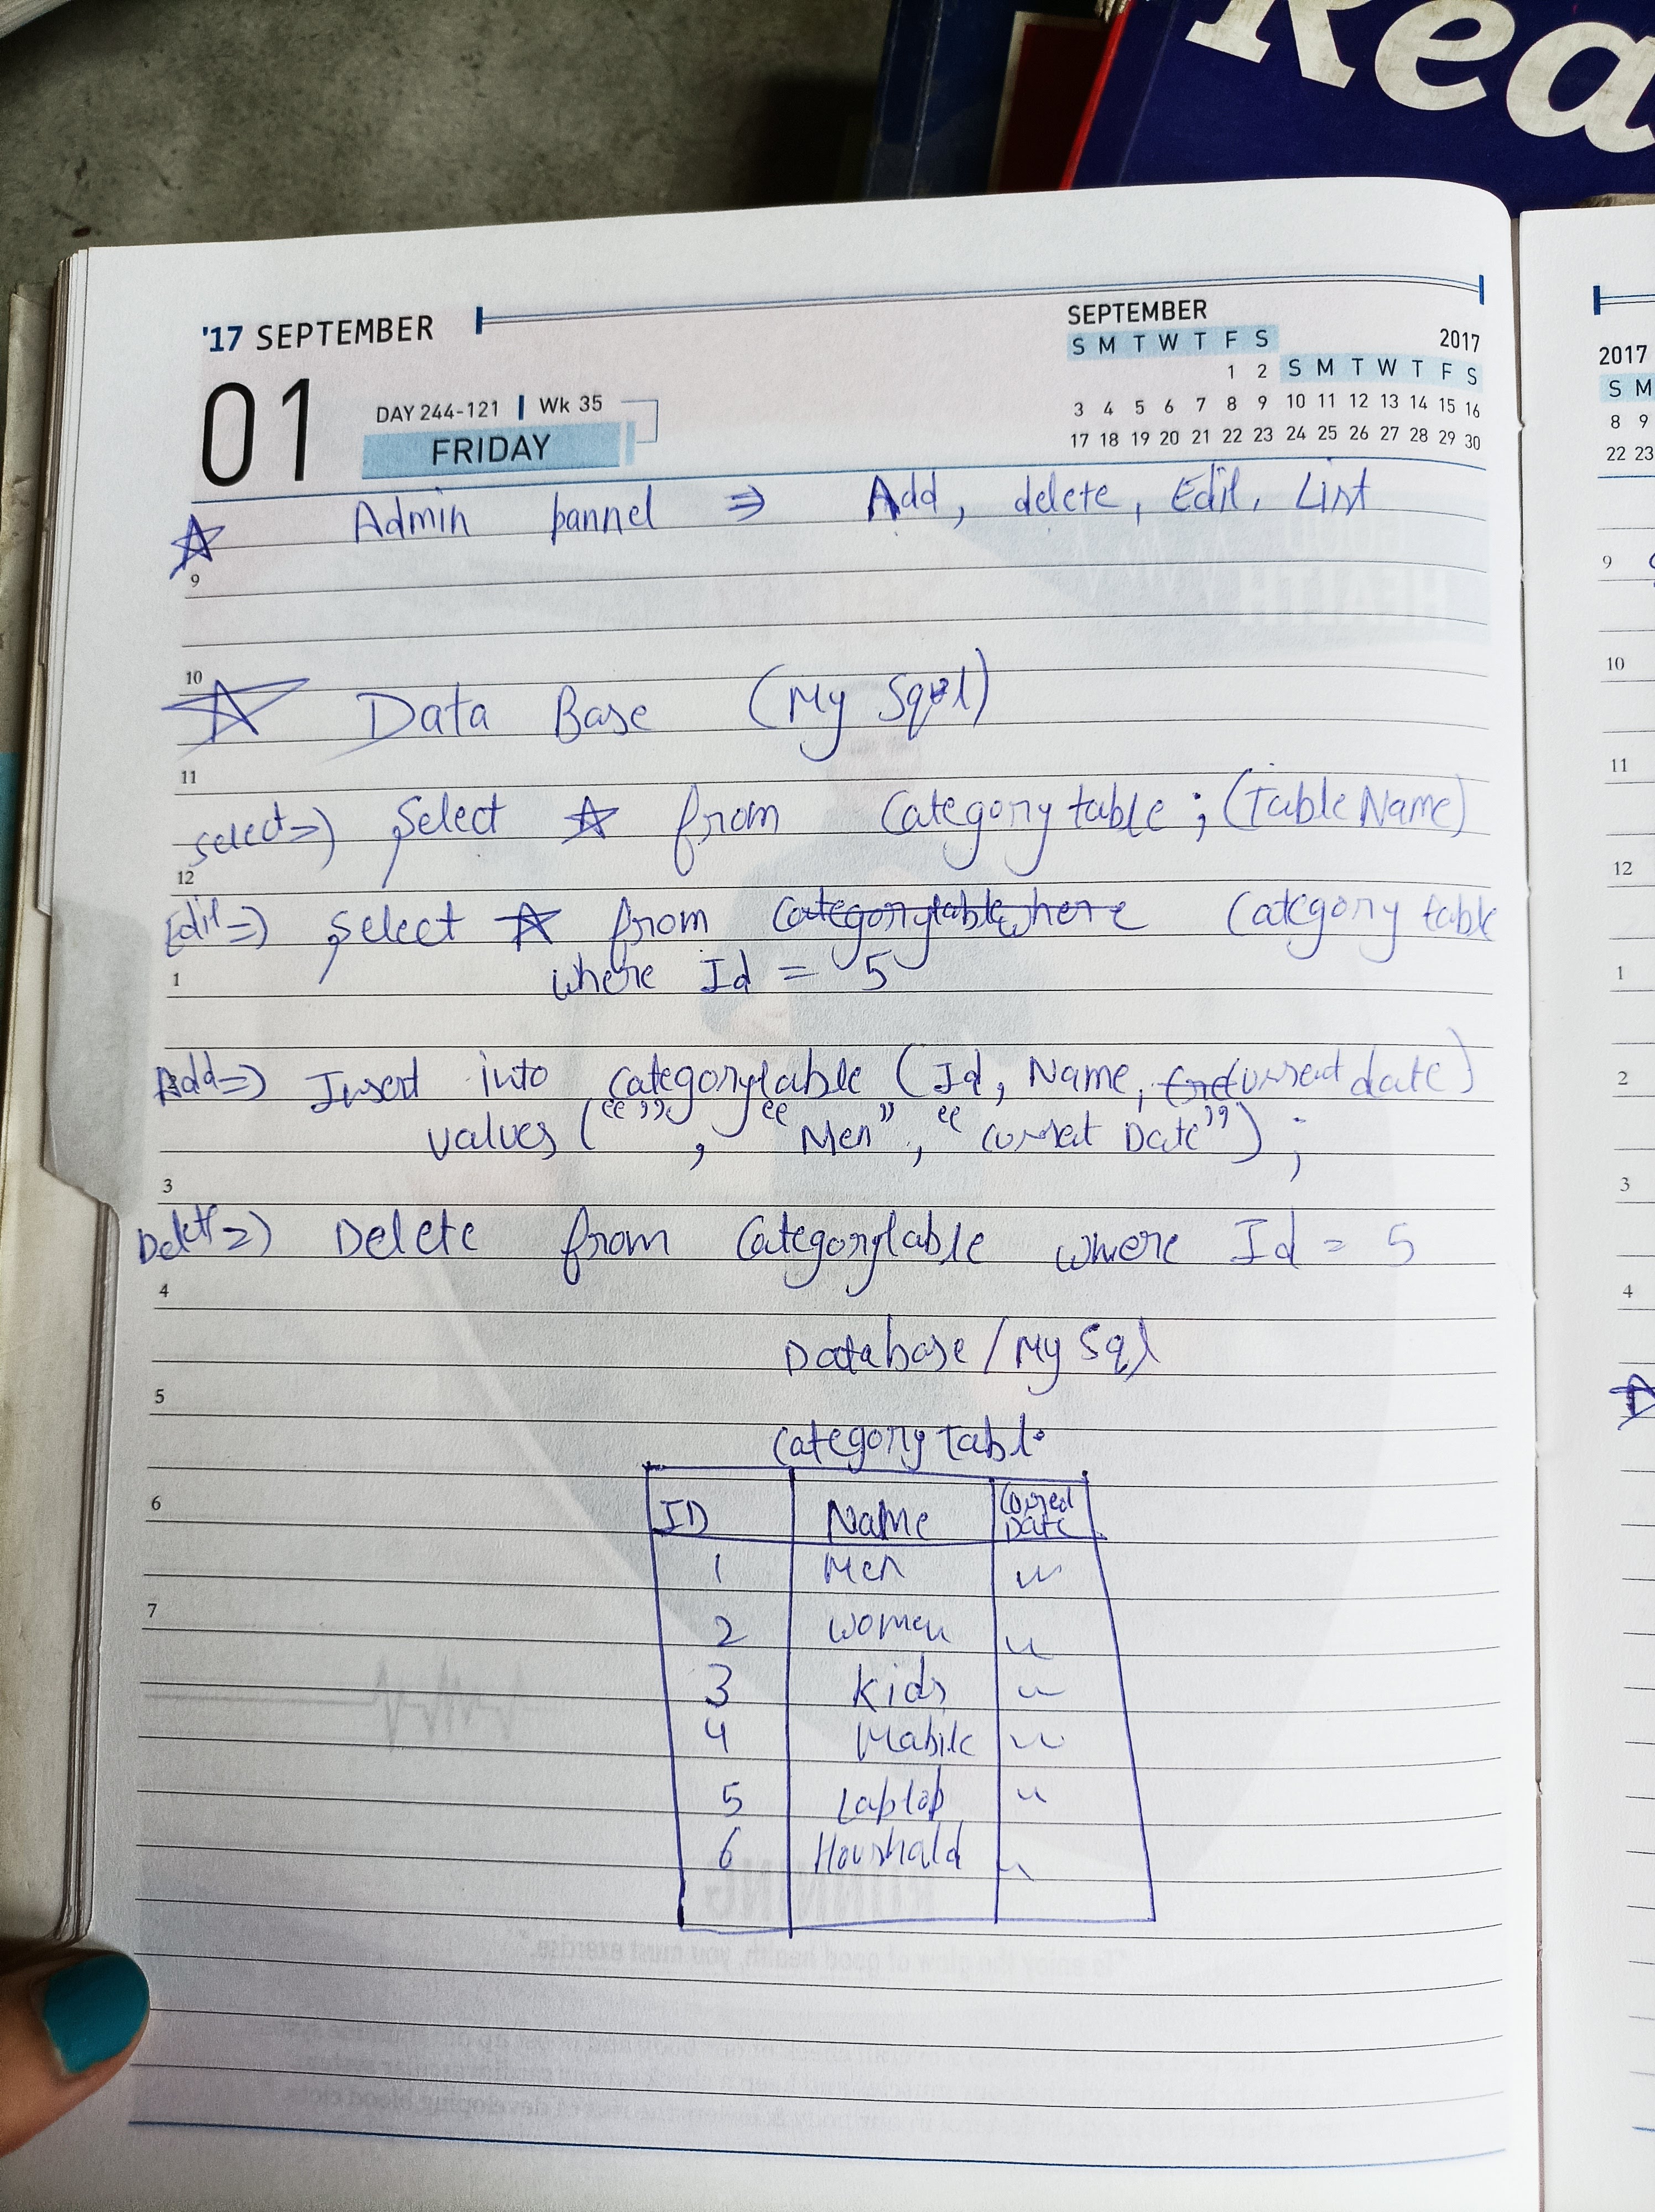 Rea
'17 SEPTEMBER
01
DAY 244-121 | Wk 35
FRIDAY
SEPTEMBER
2017
S M T W T F S
1 2 S M T W T F S
3 4 5 6 7 8 9 10 11 12 13 14 15 16
17 18 19 20 21 22 23 24 25 26 27 28 29 30
Admin pannel ⇒ Add, delete, Edit, List
9
10
Data Base (My Sql)
11
select=) Select * from Categorytable ; (Table Name)
12
Edit=) Select * from Categorytable where Category table
1
where Id = 5
Add=) Insert into categorytable (Id, Name, date)
2
values ("", "Men", " Date") ;
3
Delete=) Delete from Categorytable where Id = 5
4
Database / My Sql
5
Category table
6
ID Name Date
1 Men "
2 women "
7
3 kids "
4 Mabile "
5 Laptop "
6 Houshald "
2017
S M
8 9
22 23
9
10
11
12
1
2
3
4